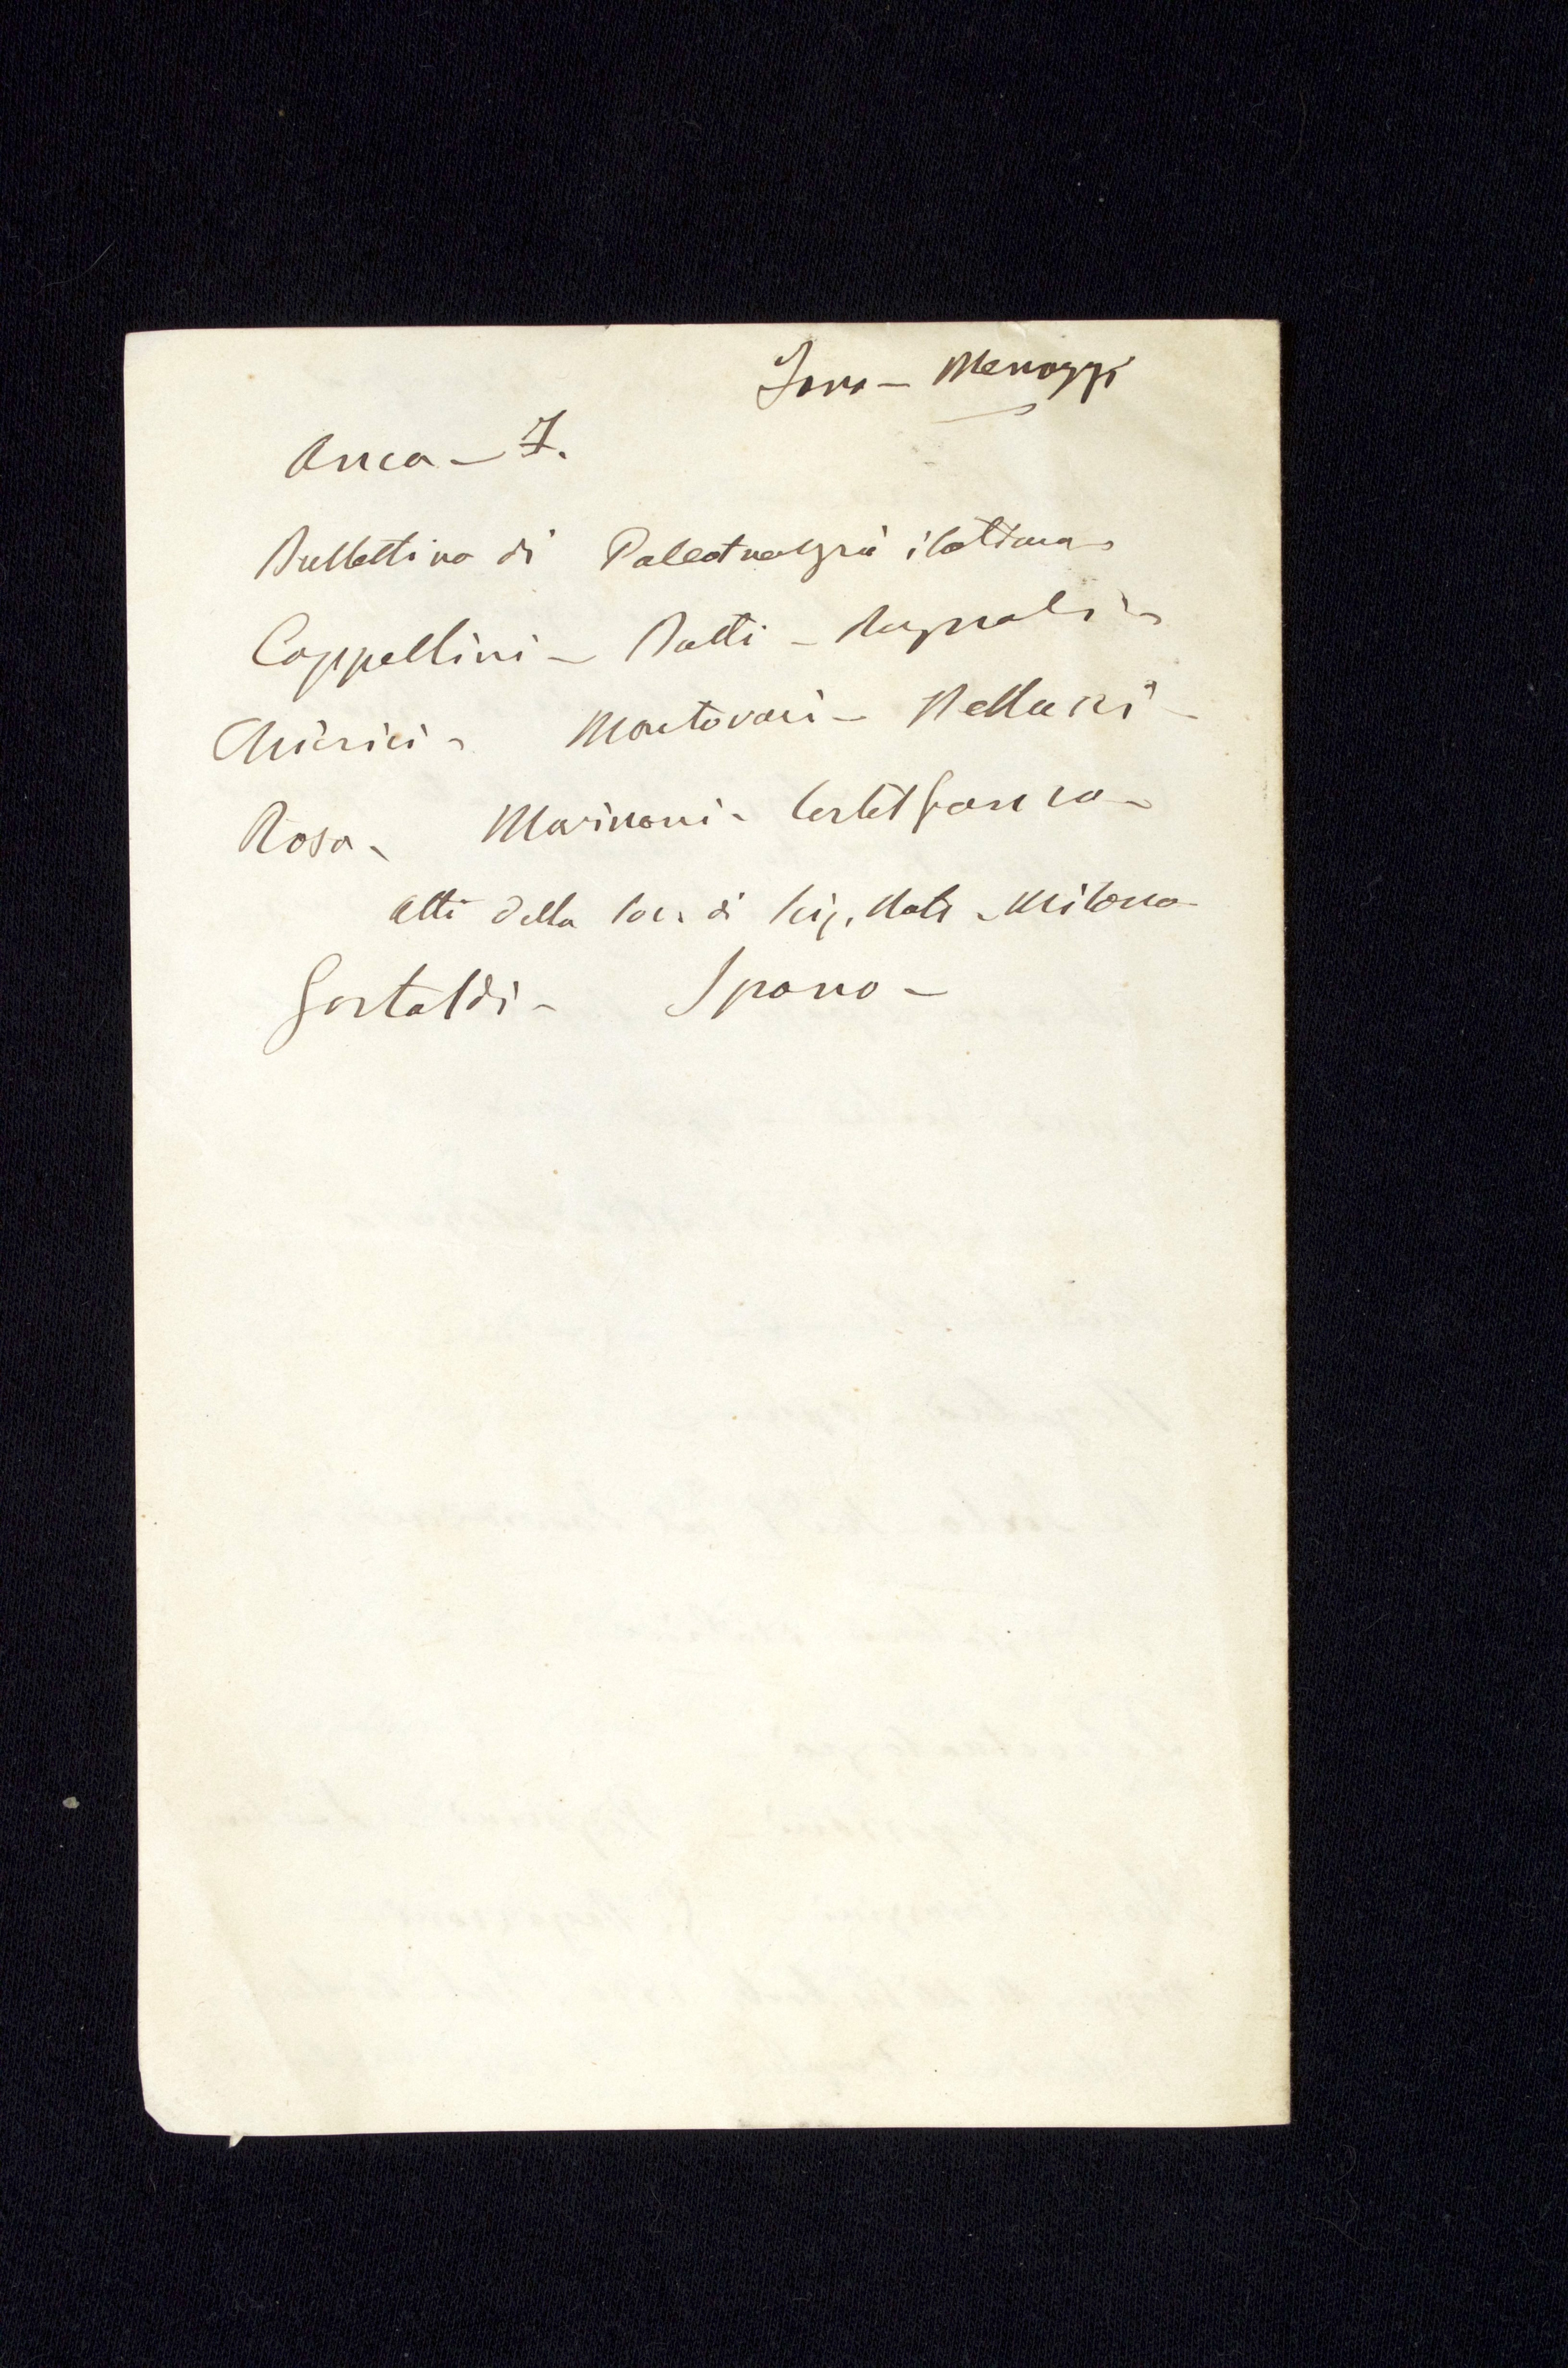 Issel – Menozzi
Anca – I.
Bullettino di Paletnologia italiana
Cappellini – Botti – Regnoli –
Chierici – Mantovani – Bellucci –
Rosa – Marinoni – Castelfranco –
Atti della Soc. di Sci. Nat. – Milano
Gastaldi – Spano –